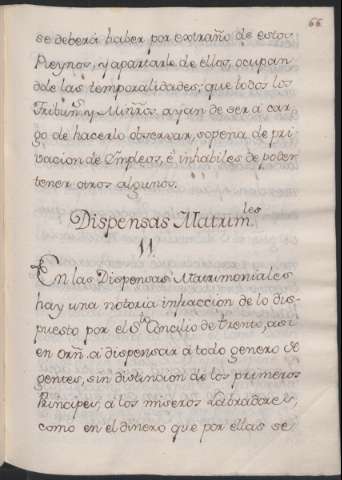 66
se deberá haber por extraño de estos
Reynos, y apartarle de ellos, ocupan
dole las temporalidades; que todos los
Tribun.s y Miñros ayan de ser á car
go de hacerlo observar, sopena de pri
vacion de Empleos, é inhabiles de poder
tener otros algunos.
Dispensas Matrim.les
11.
En las Dispensas Matrimoniales
hay una notoria infraccion de lo dis
puesto por el S.to Concilio de trento, asi
en orñ. a dispensar á todo genero de
gentes, sin distincion de los primeros
Principes, á los miseros Labradores,
como en el dinero que por ellas se